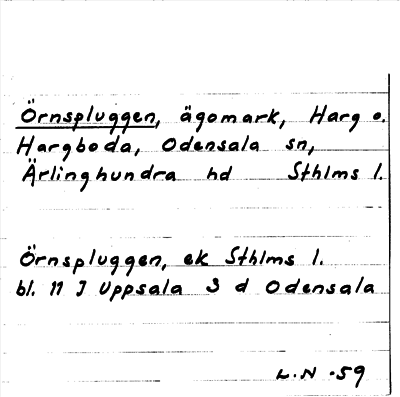 Örnspluggen, ägomark, Harg o.
Hargboda, Odensala sn,
Ärlinghundra hd Sthlms l.
Örnspluggen, ek Sthlms l.
bl. 11 I Uppsala S d Odensala
L.N -59